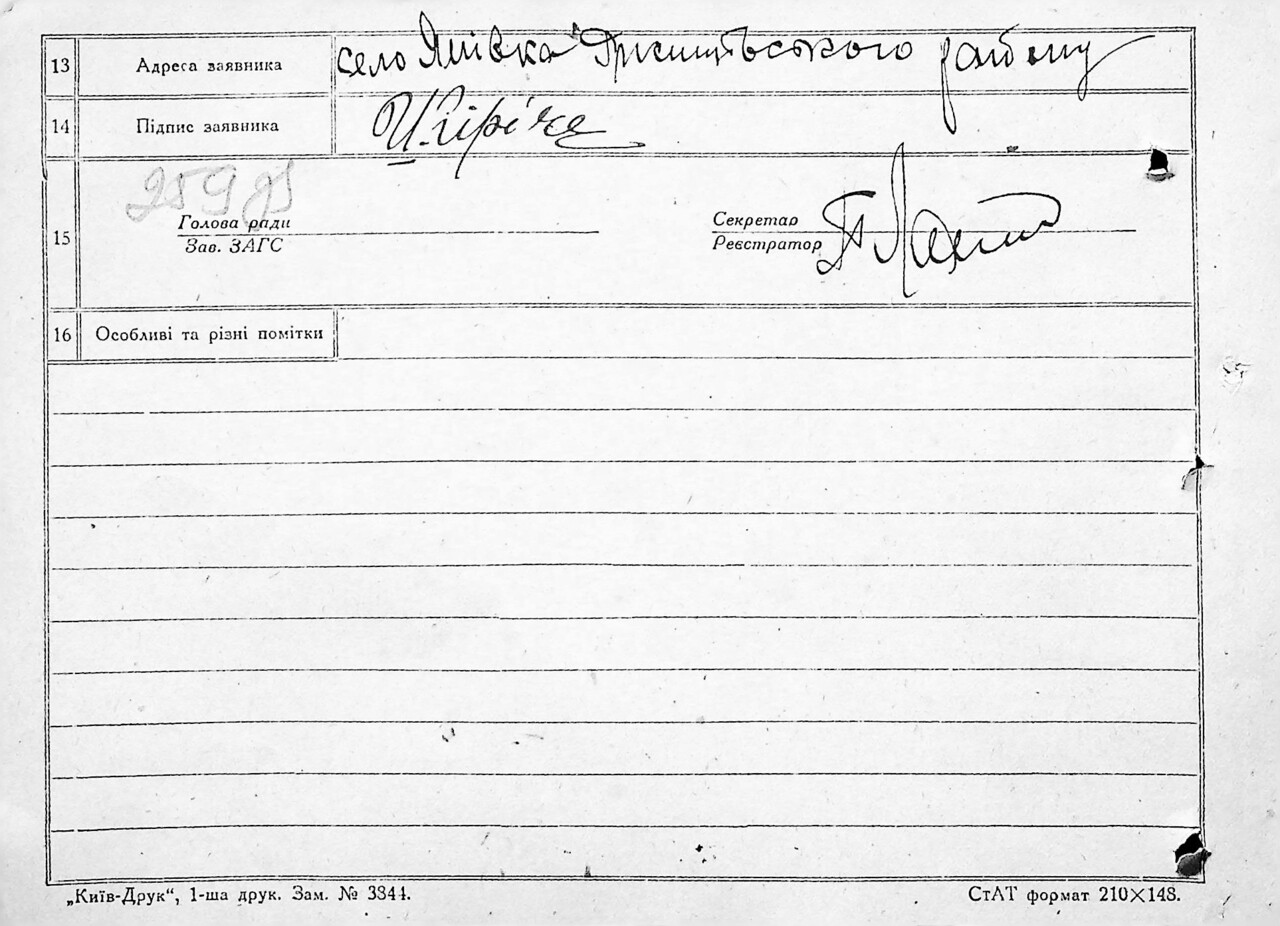 13 Адреса заявника село Ямівка району
14 Підпис заявника
15 Голова ради Секретар
Зав. ЗАГС Реєстратор
16 Особливі та різні помітки
„Київ-Друк“, 1-ша друк. Зам. № 3844. СтАТ формат 210×148.